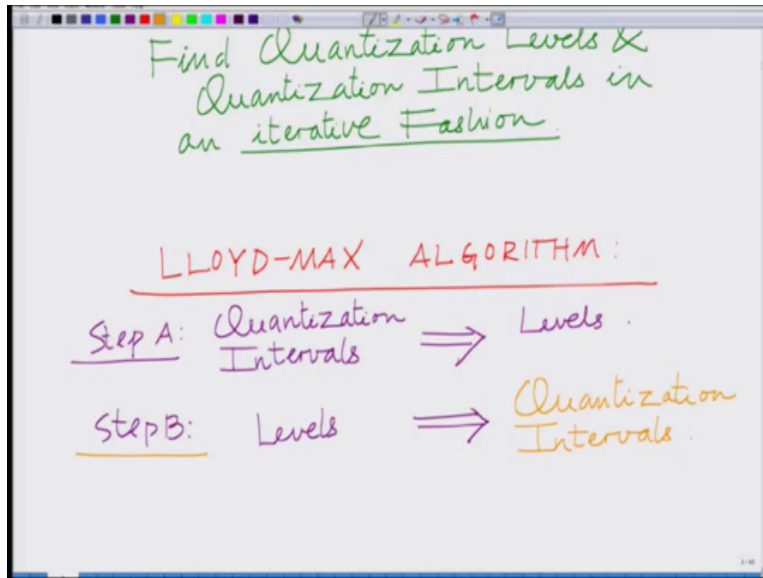 Find Quantization Levels &
Quantization Intervals in
an iterative Fashion.
LLOYD-MAX ALGORITHM:
Step A: Quantization Intervals ⟹ Levels.
Step B: Levels ⟹ Quantization Intervals.